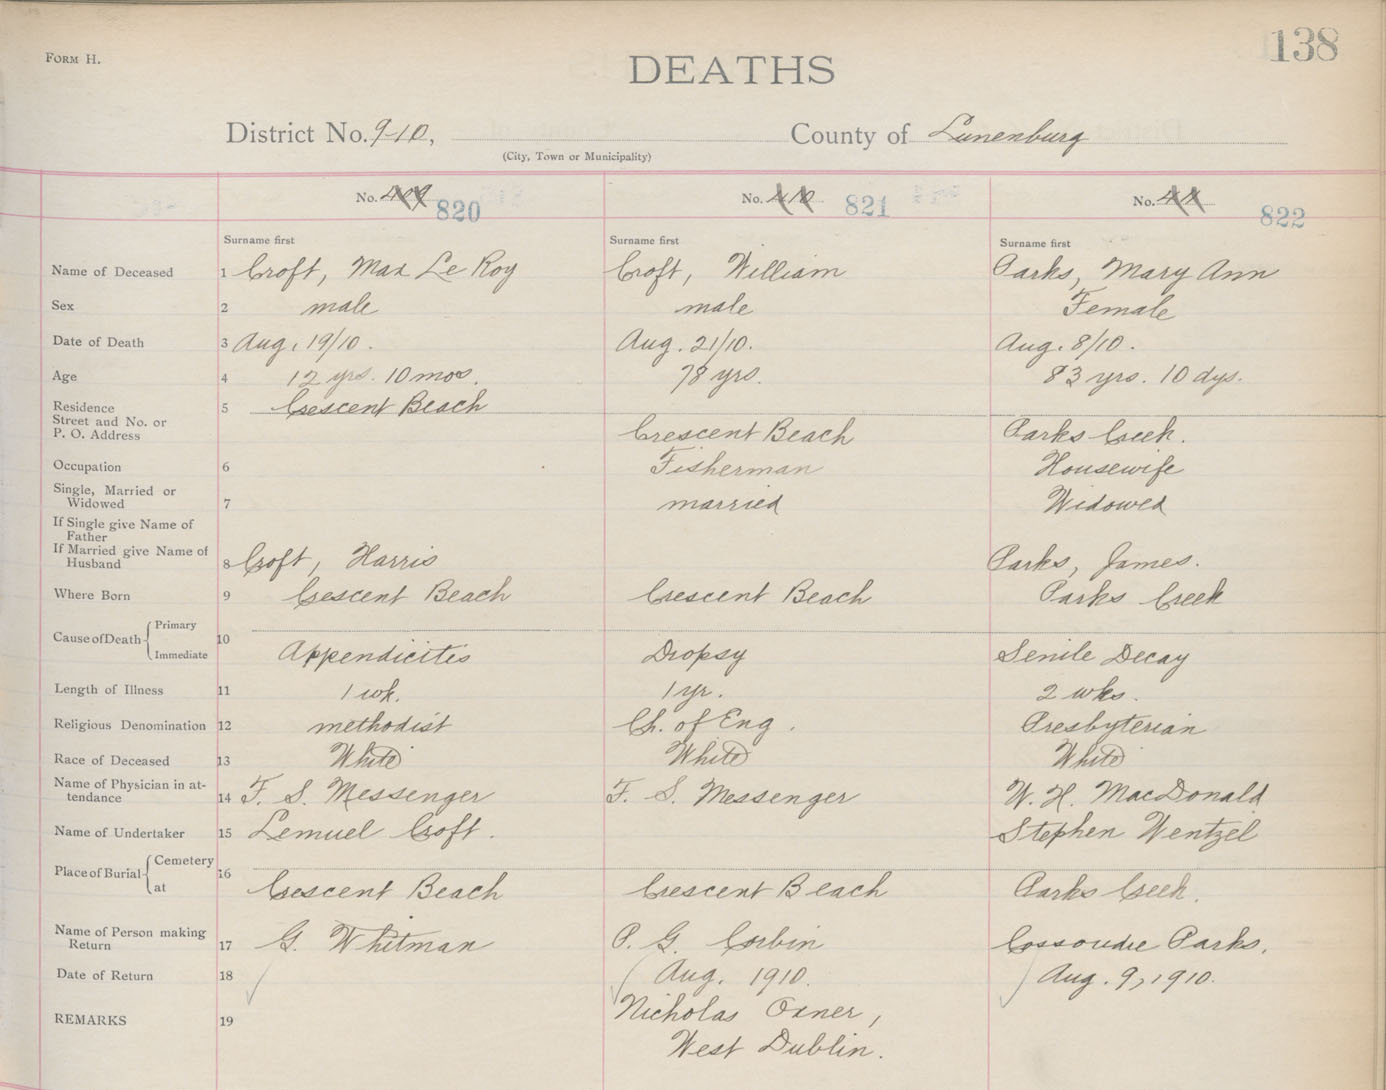 138
FORM H.
DEATHS
District No. 9-10, County of Lunenburg
(City, Town or Municipality)
No. 409 820 No. 410 821 No. 822
Surname first Surname first Surname first
Name of Deceased 1 Croft, Max Le Roy Croft, William Parks, Mary Ann
Sex 2 male male Female
Date of Death 3 Aug. 19/10. Aug. 21/10. Aug. 8/10.
Age 4 12 yrs. 10 mos. 78 yrs. 83 yrs. 10 dys.
Residence 5 Crescent Beach
Street and No. or
P. O. Address Crescent Beach Parks Creek.
Occupation 6 Fisherman Housewife
Single, Married or
Widowed 7 married Widowed
If Single give Name of
Father
If Married give Name of
Husband 8 Croft, Harris Parks, James.
Where Born 9 Crescent Beach Crescent Beach Parks Creek
Cause of Death Primary 10
Immediate Appendicitis Dropsy Senile Decay
Length of Illness 11 1 wk. 1 yr. 2 wks.
Religious Denomination 12 methodist Ch. of Eng. Presbyterian
Race of Deceased 13 White White White
Name of Physician in at-
tendance 14 F. S. Messenger F. S. Messenger W. H. MacDonald
Name of Undertaker 15 Lemuel Croft. Stephen Wentzel
Place of Burial Cemetery 16
at Crescent Beach Crescent Beach Parks Creek.
Name of Person making
Return 17 G. Whitman P. G. Corbin Parks.
Date of Return 18 Aug. 1910. Aug. 9, 1910.
REMARKS 19 Nicholas Oxner,
West Dublin.